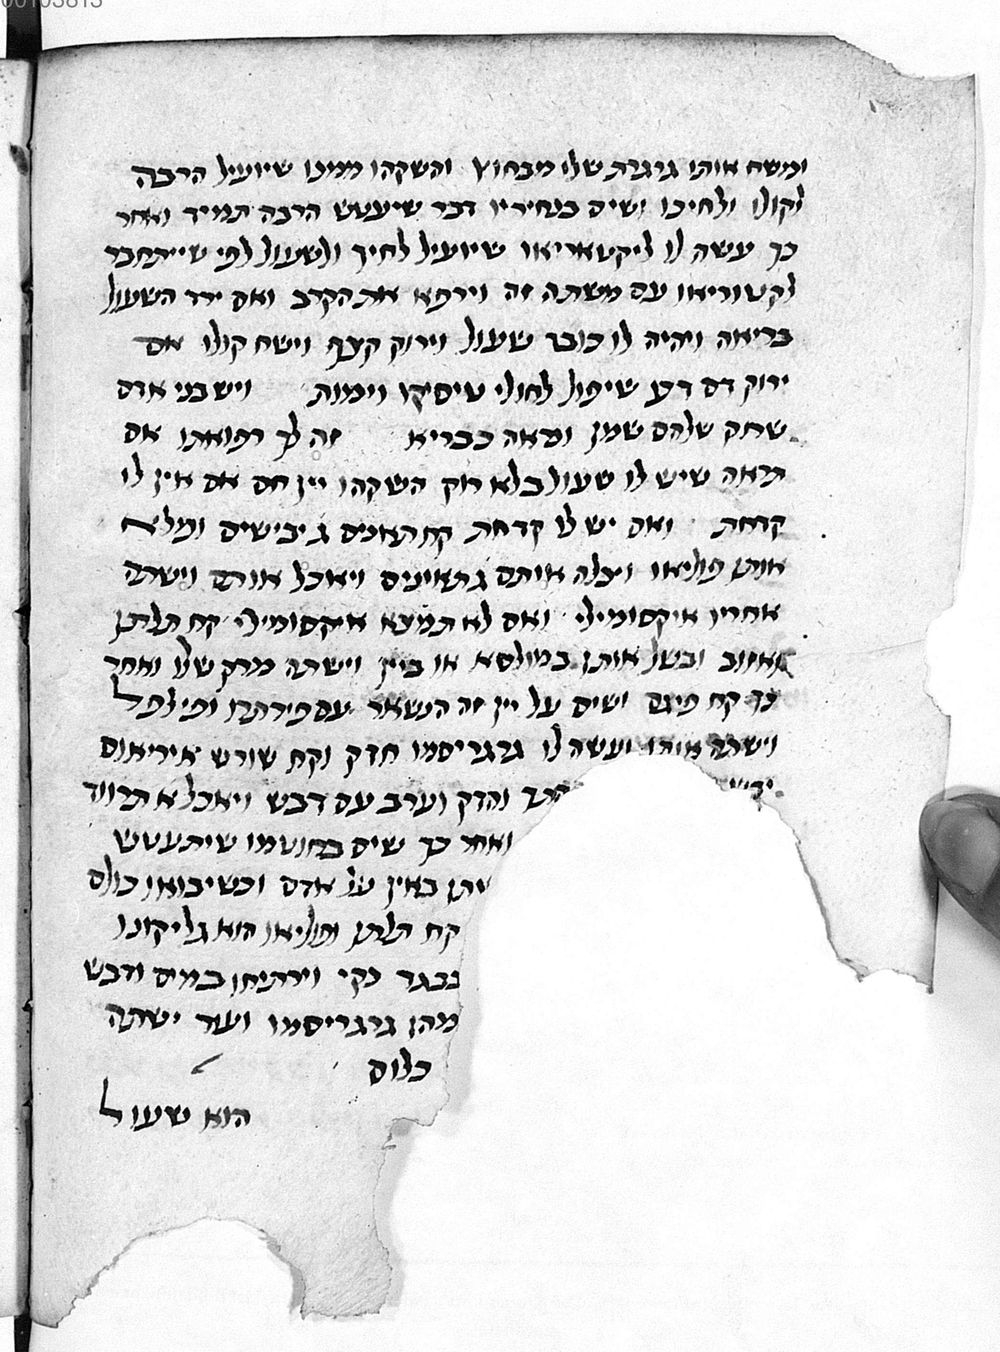 00103813
ומשח אותו גרגרת שלו מבחוץ והשקהו ממנו שיועיל הרבה
לקולו ולחיכו ושים בנחיריו דבר שיעטש הרבה תמיד ואחר
כך עשה לו ליקטאריאו שיועיל לחיך ולשעול לפי שיתחבר
לקטוריאו עם משתה זה וירפא את הקרב ואם ירד השעול
בריאה ויהיה לו כובד שעול וירוק קצף וישח קולו אם
ירוק דם דע שיפול לחולי טיסיקו וימות ויש בני אדם
שרוק שלהם שמן ונראה כבריא זה לך רפואתו אם
תראה שיש לו שעול בלא רוק השקהו יין חם אם אין לו
קדחת ואם יש לו קדחת קח תאנים ג יבישים ומלא
אותן פוליאו ויצלה אותם ויאכל אותם וישתה
אחריו איקסומילי ואם לא תמצא איקסומילי קח תלתן
ואזוב ובשל אותן במולסא או ביין וישתה מרק שלו ואחר
כך קח פיגם ושים על יין זה הנשאר עם פירתרו ופילפל
וישתה אותו ועשה לו גרגריסמו חזק וקח שורש איריאוס
והדק וערב עם דבש ויאכל א תרווד
ואחר כך שים בחוטמו שיתעטש
באין על אדם וכשיבואו כולם
קח תלתן ופוליאו הוא גליקונו
בבגד נקי וירתיחו במים ודבש
מהן גרגריסמו ועוד ישתה
כלום
הוא שעול